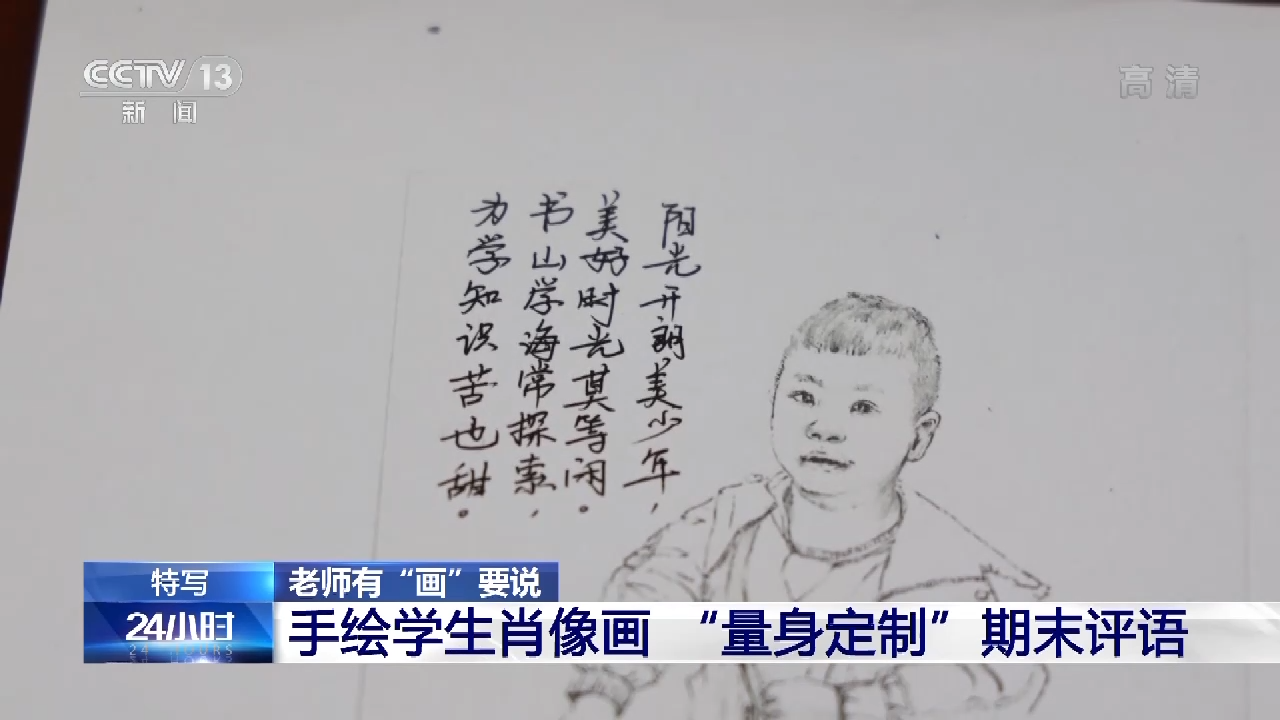 CCTV 13
新闻
高清
阳光开朗美少年，
美好时光莫等闲。
书山学海常探索，
为学知识苦也甜。
特写
老师有“画”要说
24小时
24 HOURS
手绘学生肖像画 “量身定制”期末评语